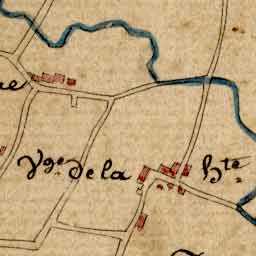 Vge. de la hte.